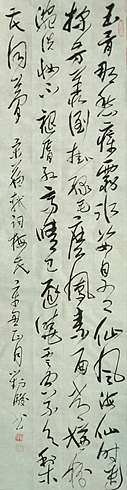 玉骨那愁瘴霧冰姿自有仙風海仙時遣
探芳叢倒掛綠毛幺鳳素面常嫌粉
涴洗妝不褪唇紅高情已逐曉雲空不與梨
花同夢 詞梅花 正月